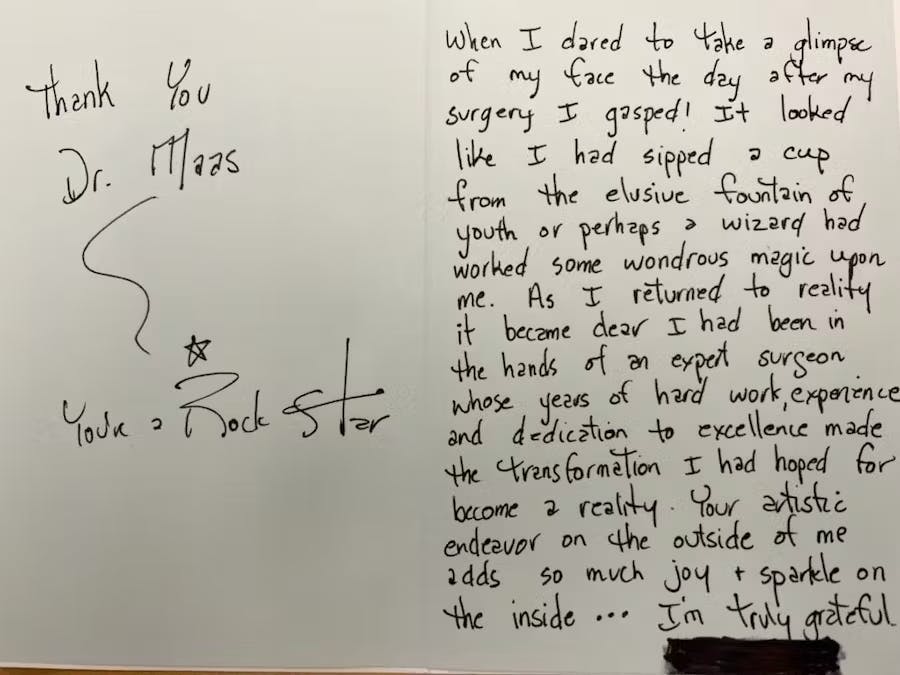 Thank You
Dr. Maas
You're a Rock Star
When I dared to take a glimpse
of my face the day after my
surgery I gasped! It looked
like I had sipped a cup
from the elusive fountain of
youth or perhaps a wizard had
worked some wondrous magic upon
me. As I returned to reality
it became clear I had been in
the hands of an expert surgeon
whose years of hard work, experience
and dedication to excellence made
the transformation I had hoped for
become a reality. Your artistic
endeavor on the outside of me
adds so much joy + sparkle on
the inside ... I'm truly grateful.